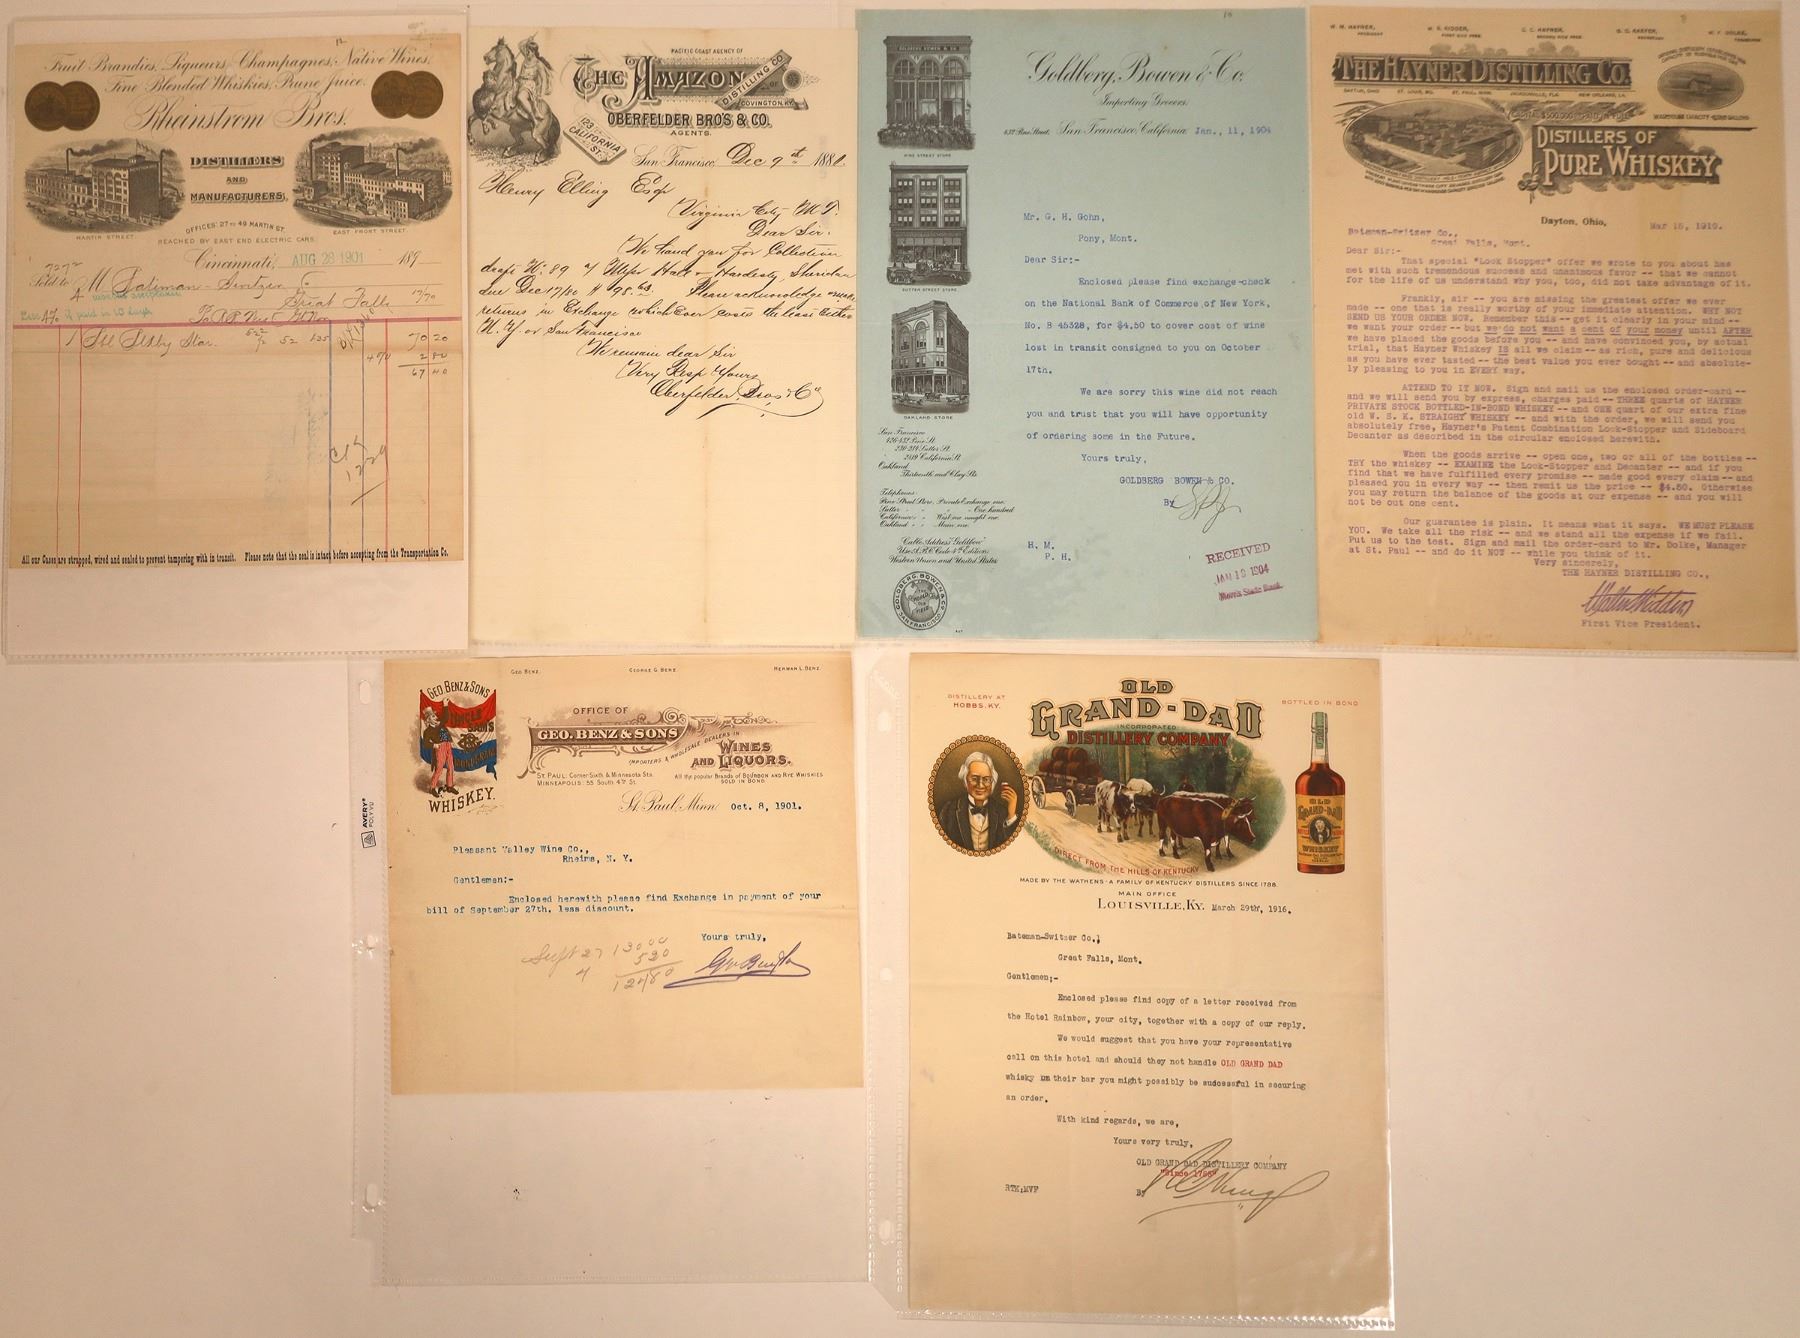 Fruit Brandies, Liqueurs, Champagnes, Native Wines,
Fine Blended Whiskies, Prune Juice.
Rheinstrom Bros.
DISTILLERS
AND
MANUFACTURERS,
OFFICES: 27 TO 49 MARTIN ST.
MARTIN STREET.
EAST FRONT STREET.
REACHED BY EAST END ELECTRIC CARS.
Cincinnati, AUG 28 1901 189
7272
Sold to
Great Falls
if paid in 10 days
1
52
70 20
2 80
67 40
All our Cases are strapped, wired and sealed to prevent tampering with in transit. Please note that the seal is intact before accepting from the Transportation Co.
PACIFIC COAST AGENCY OF
THE AMAZON
DISTILLING CO
OF
COVINGTON, KY.
OBERFELDER BRO'S & CO.
AGENTS.
123
CALIFORNIA
ST.
San Francisco, Dec 9th 188
Henry Elling Esqr
Virginia City M.T.
Dear Sir.
We hand you for Collection
draft No. 89 of Messrs Hall & Hardesty, Sheridan
due Dec 17/80 $98.63. Please acknowledge & make
returns in Exchange whichever costs the least Either
N.Y. or San Francisco
We remain dear Sir
Very Resp Yours
Oberfelder Bros & Co
10
GOLDBERG BOWEN & CO.
PINE STREET STORE
SUTTER STREET STORE
OAKLAND STORE
Goldberg, Bowen & Co.
Importing Grocers.
432 Pine Street, San Francisco, California Jan., 11, 1904
Mr. G. H. Gohn,
Pony, Mont.
Dear Sir:-
Enclosed please find exchange-check
on the National Bank of Commerce, of New York,
No. B 45328, for $4.50 to cover cost of wine
lost in transit consigned to you on October
17th.
We are sorry this wine did not reach
you and trust that you will have opportunity
of ordering some in the Future.
Yours truly,
GOLDBERG BOWEN & CO.
By
H. M.
P. H.
RECEIVED
JAN 19 1904
San Francisco
426-432 Pine St.
230-234 Sutter St.
2829 California St.
Oakland
Thirteenth and Clay Sts.
Telephones
Pine Street Store, Private Exchange one.
Sutter " " One hundred
California " West one nought one.
Oakland " Main, one.
Cable Address "Goldbow"
Use A.B.C. Code 4th Edition
Western Union and United States
GOLDBERG, BOWEN & CO.
SAN FRANCISCO.
W. M. HAYNER,
PRESIDENT
W. S. KIDDER,
FIRST VICE PRES.
C. C. HAYNER,
SECOND VICE PRES.
SECRETARY
W. F. DOLKE,
THE HAYNER DISTILLING CO.
DAYTON, OHIO ST. LOUIS, MO. ST. PAUL, MINN. JACKSONVILLE, FLA. NEW ORLEANS, LA.
CAPITAL $500,000.00 PAID IN FULL
DISTILLERS OF
PURE WHISKEY
Dayton, Ohio, Mar 15, 1910.
Bateman-Switzer Co.,
Great Falls, Mont.
Dear Sir:-
That special "Lock Stopper" offer we wrote to you about has
met with such tremendous success and unanimous favor -- that we cannot
for the life of us understand why you, too, did not take advantage of it.
Frankly, sir -- you are missing the greatest offer we ever
made -- one that is really worthy of your immediate attention. WHY NOT
SEND US YOUR ORDER NOW. Remember this -- get it clearly in your mind --
we want your order -- but we do not want a cent of your money until AFTER
we have placed the goods before you -- and have convinced you, by actual
trial, that Hayner Whiskey IS all we claim -- as rich, pure and delicious
as you have ever tasted -- the best value you ever bought -- and absolute-
ly pleasing to you in EVERY way.
ATTEND TO IT NOW. Sign and mail us the enclosed order-card --
and we will send you by express, charges paid -- THREE quarts of HAYNER
PRIVATE STOCK BOTTLED-IN-BOND WHISKEY -- and ONE quart of our extra fine
old W. S. K. STRAIGHT WHISKEY -- and with the order, we will send you
absolutely free, Hayner's Patent Combination Lock-Stopper and Sideboard
Decanter as described in the circular enclosed herewith.
When the goods arrive -- open one, two or all of the bottles --
TRY the whiskey -- EXAMINE the Lock-Stopper and Decanter -- and if you
find that we have fulfilled every promise -- made good every claim -- and
pleased you in every way -- then remit us the price -- $4.80. Otherwise
you may return the balance of the goods at our expense -- and you will
not be out one cent.
Our guarantee is plain. It means what it says. WE MUST PLEASE
YOU. We take all the risk -- and we stand all the expense if we fail.
Put us to the test. Sign and mail the order-card to Mr. Dolke, Manager
at St. Paul -- and do it NOW -- while you think of it.
Very sincerely,
THE HAYNER DISTILLING CO.,
First Vice President.
GEO. BENZ. GEORGE G. BENZ HERMAN L. BENZ.
GEO. BENZ & SONS
UNCLE
SAM'S
MONOGRAM
WHISKEY.
OFFICE OF
GEO. BENZ & SONS
IMPORTERS & WHOLESALE DEALERS IN
WINES
AND LIQUORS.
ST. PAUL: Corner Sixth & Minnesota Sts.
MINNEAPOLIS: 55 South 4th St.
All the popular Brands of BOURBON AND RYE WHISKIES
SOLD IN BOND.
St. Paul, Minn. Oct. 8, 1901.
Pleasant Valley Wine Co.,
Rheims, N. Y.
Gentlemen:-
Enclosed herewith please find Exchange in payment of your
bill of September 27th, less discount.
Yours truly,
Sept 27 130 00
4 5 20
124 80
Geo Benz & Son
AVERY
POLY VU
DISTILLERY AT
HOBBS, KY.
OLD
GRAND-DAD
INCORPORATED
DISTILLERY COMPANY
BOTTLED IN BOND
OLD
GRAND-DAD
WHISKEY
DIRECT FROM THE HILLS OF KENTUCKY
MADE BY THE WATHENS - A FAMILY OF KENTUCKY DISTILLERS SINCE 1788.
MAIN OFFICE
LOUISVILLE, KY. March 29th, 1916.
Bateman-Switzer Co.,
Great Falls, Mont.
Gentlemen;-
Enclosed please find copy of a letter received from
the Hotel Rainbow, your city, together with a copy of our reply.
We would suggest that you have your representative
call on this hotel and should they not handle OLD GRAND DAD
whisky on their bar you might possibly be successful in securing
an order.
With kind regards, we are,
Yours very truly,
OLD GRAND DAD DISTILLERY COMPANY
"Since 1788"
By
RTK;MVF